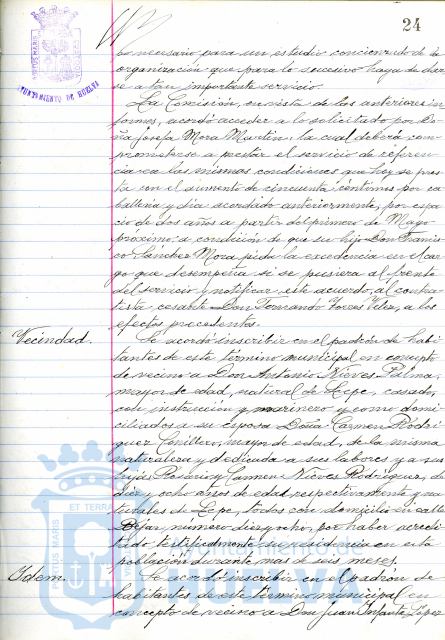 24
AYUNTAMIENTO DE HUELVA
po necesario para un estudio concienzudo de la
organización que para lo sucesivo haya de dar-
se a tan importante servicio.
La Comisión, en vista de los anteriores in-
formes, acordó acceder a lo solicitado por Do-
ña Josefa Mora Martín, la cual deberá com-
prometerse a prestar el servicio de referen-
cia en las mismas condiciones que hoy se pres-
ta con el aumento de cincuenta céntimos por ca-
ballería y día acordado anteriormente, por espa-
cio de dos años a partir del primero de Mayo
próximo, a condición de que su hijo Don Francis-
co Sánchez Mora pida la excedencia en el car-
go que desempeña si se pusiera al frente
del servicio y notificar este acuerdo, al contra-
tista cesante Don Fernando Torres Vélez, a los
efectos procedentes.
Vecindad. Se acordó inscribir en el padrón de habi-
tantes de este término municipal en concepto
de vecino a Don Antonio Nieves Palma,
mayor de edad, natural de Lepe, casado,
con instrucción y marinero y como domi-
ciliados a su esposa Doña Carmen Rodrí-
guez, mayor de edad, de la misma
naturaleza y dedicada a sus labores y a sus
hijas Rosario y Carmen Nieves Rodríguez, de
diez y ocho años de edad, respectivamente y na-
turales de Lepe, todos con domicilio en calle
número diez y ocho, por haber acredi-
tado testificalmente su residencia en esta
población durante mas de seis meses.
Idem. Se acordó inscribir en el padrón de
habitantes de este término municipal en
concepto de vecino a Don Juan Infante López
PORTUS MARIS ET TERRAE
Ayuntamiento de
HUELVA